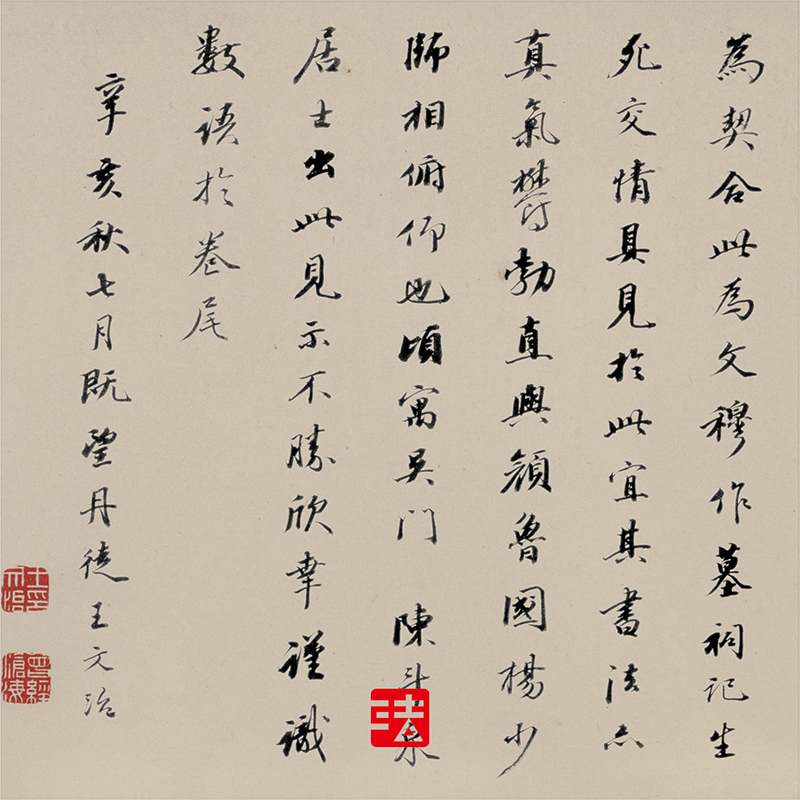 為契合此為文穆作墓祠記生
死交情具見於此宜其書法亦
真氣鬱勃直與顏魯國楊少
師相俯仰也頃寓吳門 陳斗泉
居士出此見示不勝欣幸謹識
數語於卷尾
辛亥秋七月既望丹徒王文治
王文治印
曾經滄海